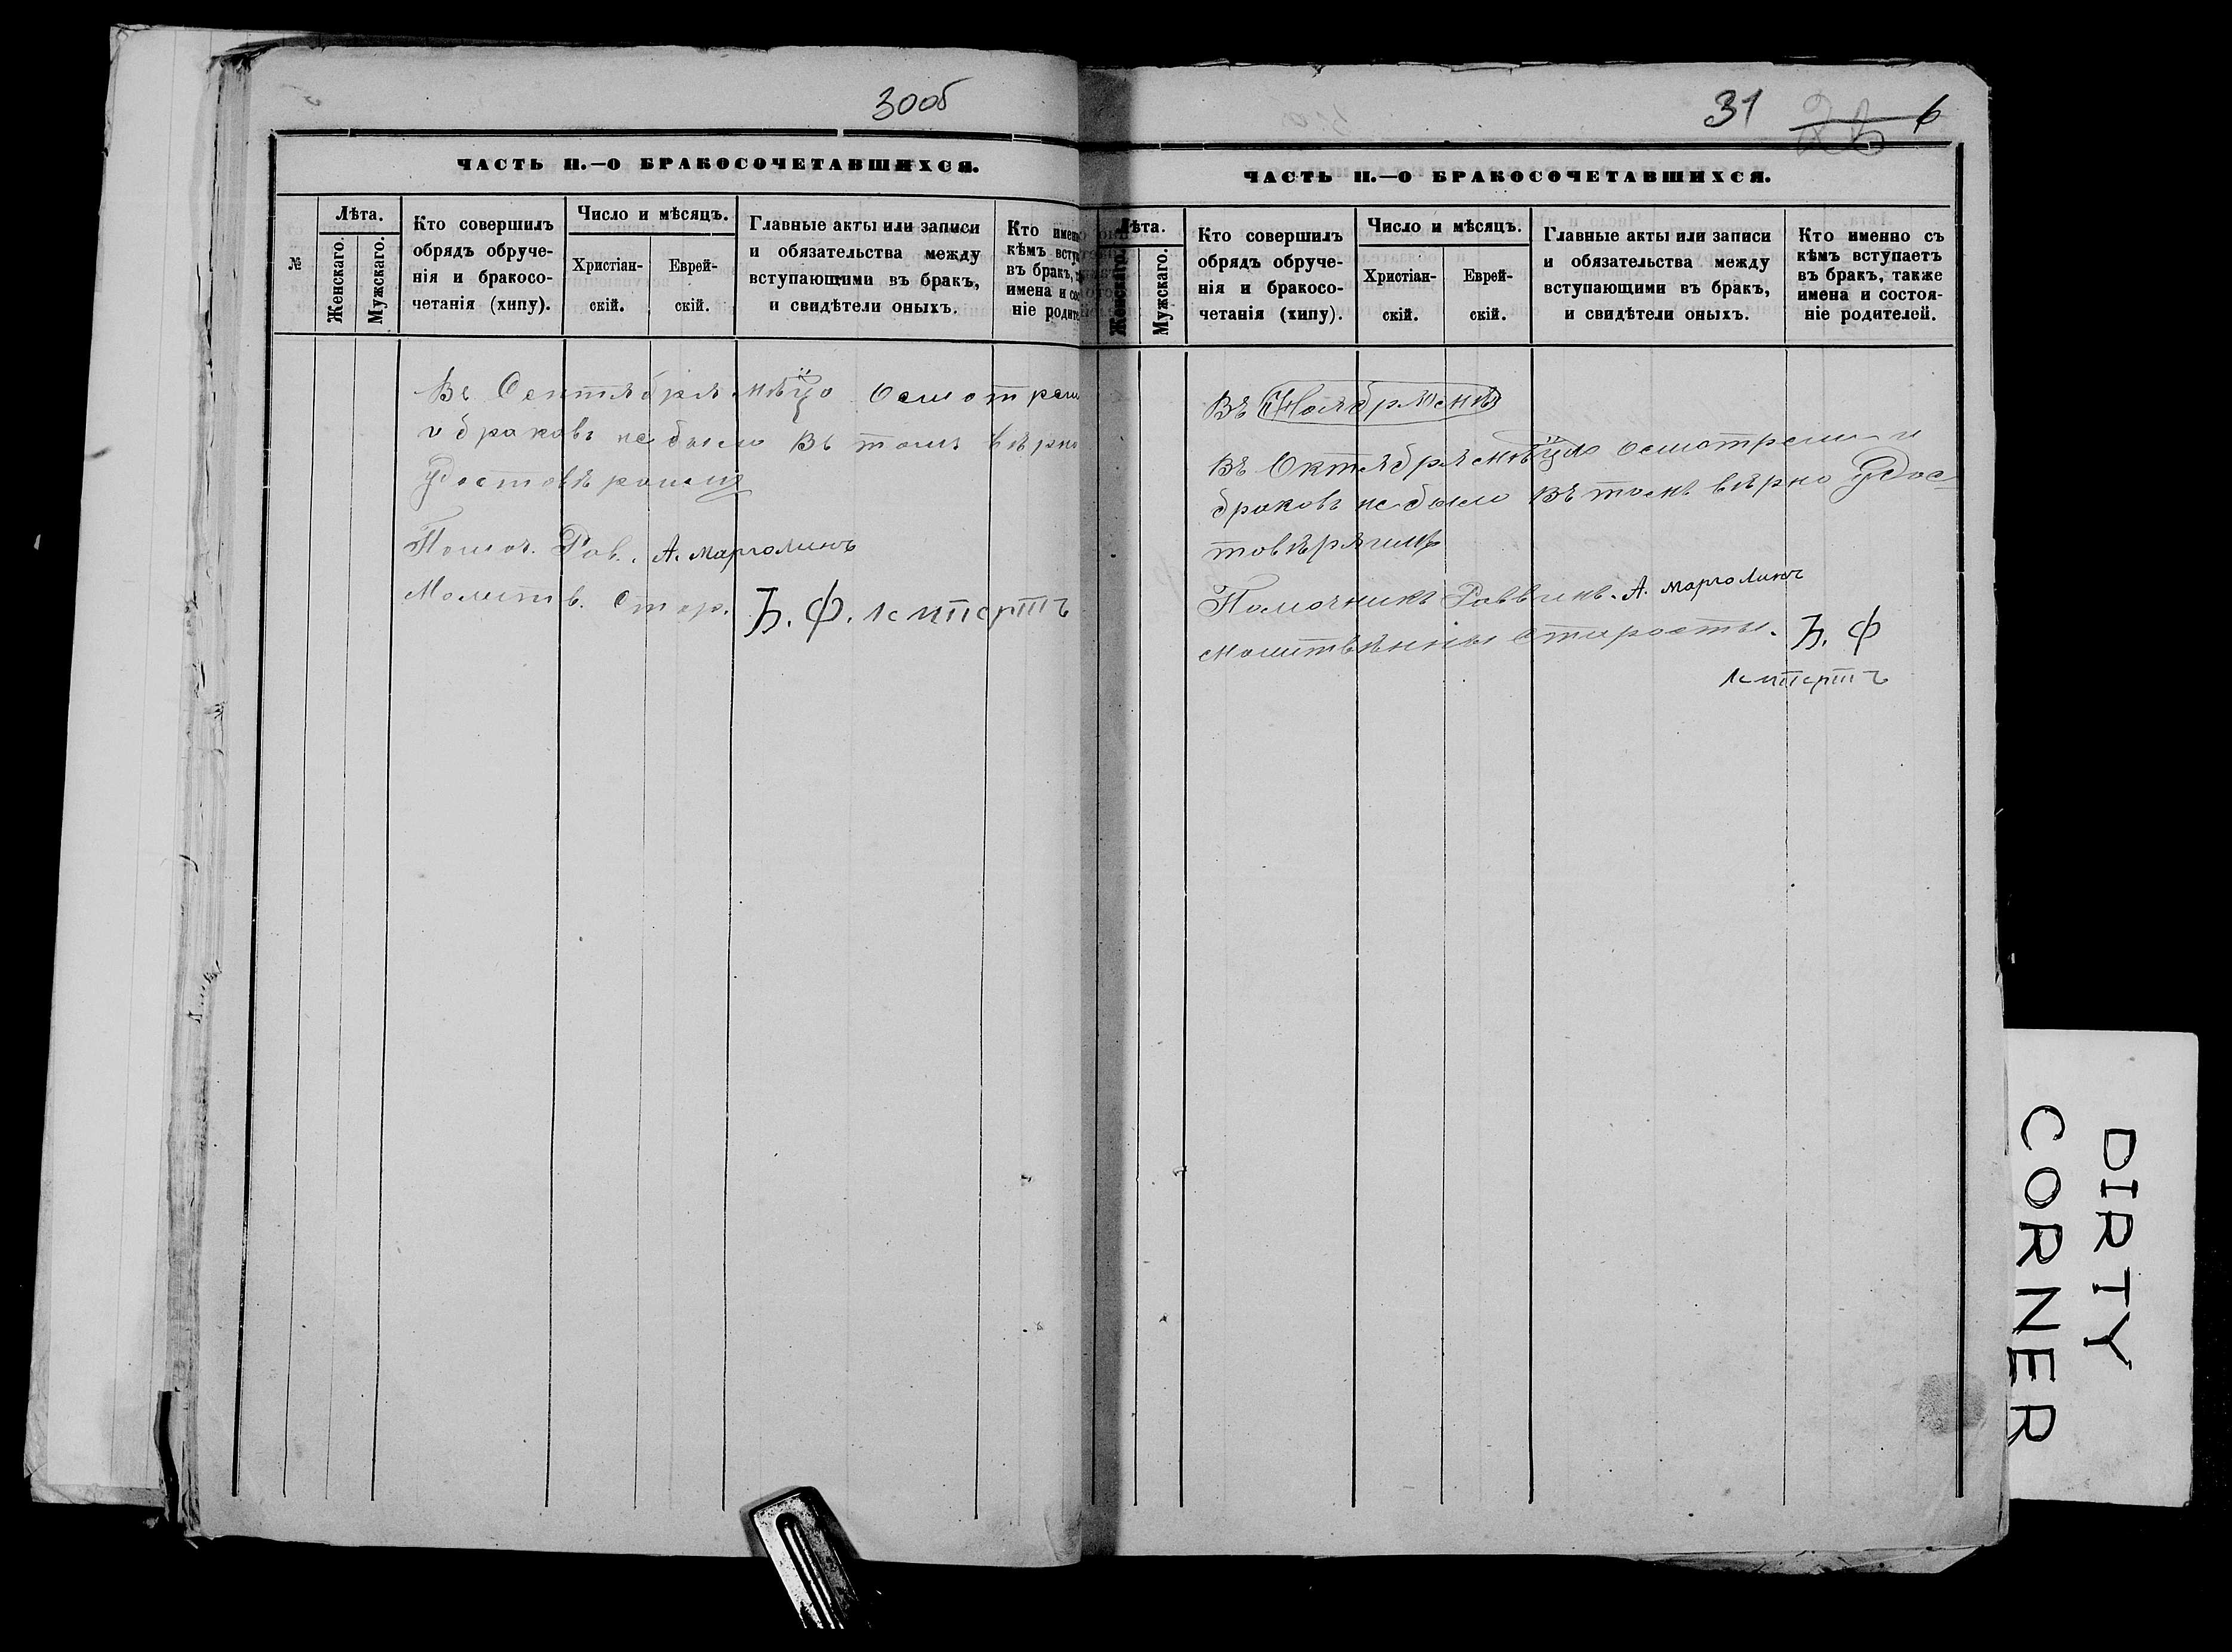 30об
ЧАСТЬ II.—О БРАКОСОЧЕТАВШИХСЯ.
№
Лѣта.
Женскаго.
Мужскаго.
Кто совершилъ
обрядъ обруче-
нія и бракосо-
четанія (хипу).
Число и мѣсяцъ.
Христіан-
скій.
Еврей-
скій.
Главные акты или записи
и обязательства между
вступающими въ бракъ,
и свидѣтели оныхъ.
Кто имен
кѣмъ всту
въ бракъ,
имена и со
ніе родит
Вс Сентябрѣ мѣцѣ осмотрели
и браковъ не было въ томъ вѣрно
Удостовѣраимъ
Помоч. Рав. А. Марголинъ
Молитв. Стар. Б. Ф. Лемпертъ
31 6
ЧАСТЬ II.—О БРАКОСОЧЕТАВШИХСЯ.
Лѣта.
Женскаго.
Мужскаго.
Кто совершилъ
обрядъ обруче-
нія и бракосо-
четанія (хипу).
Число и мѣсяцъ.
Христіан-
скій.
Еврей-
скій.
Главные акты или записи
и обязательства между
вступающими въ бракъ,
и свидѣтели оныхъ.
Кто именно съ
кѣмъ вступаетъ
въ бракъ, также
имена и состоя-
ніе родителей.
Въ Ноябрѣ
Въ Октябрѣ осмотрели и
браковъ не было въ томъ вѣрно Удос-
товѣряимъ
Помочникъ Раввинъ. А. Марголинъ
Молитвѣнный Старосты. Б. Ф
Лемпертъ
DIRTY
CORNER